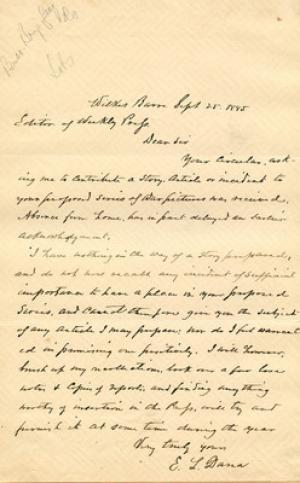 Wilkes Barre Sept 25. 1885
Editor of Weekly Press
Dear Sir
Your Circular, ask-
ing me to contribute a Story, Article or incident to
your proposed Series of War pictures was received.
Absence from home, has in part delayed an earlier
acknowledgment.
I have nothing in the way of a Story prepared,
and do not now recall any incident of sufficient
importance to have a place in your proposed
Series, and cannot therefore give you the subject
of any Article I may prepare; nor do I feel warrant-
ed in promising one positively. I will however,
brush up my recollections, look over a few loose
notes & Copies of reports, and finding anything
worthy of insertion in the Press, will try and
furnish it at some time during the year
Very truly yours
E. L. Dana